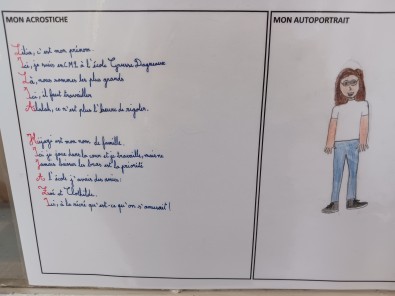 MON ACROSTICHE
MON AUTOPORTRAIT
Lilia, c'est mon prénom.
Ici, je suis en CM2 à l'école
Là, nous sommes les plus grands
Ici, il faut travailler
Ahlalah, ce n'est plus l'heure de rigoler.
est mon nom de famille.
Ici je joue dans la cour et je travaille, mais ne
Jamais baisser les bras est la priorité
A l'école j'avais des amies :
et Clothilde.
Ici, à la récré qu'est-ce qu'on s'amusait !